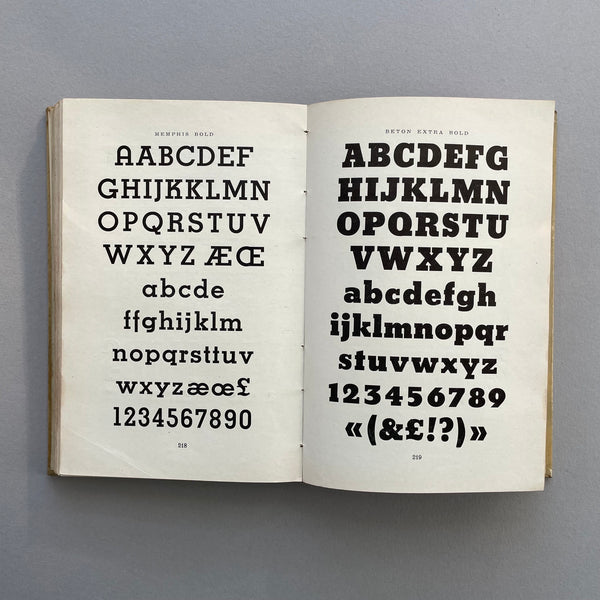 MEMPHIS BOLD
AABCDEF
GHIJKKLMN
OPQRSTUV
WXYZ ÆŒ
abcde
ffghijklm
nopqrsttuv
wxyzæœ£
1234567890
218
BETON EXTRA BOLD
ABCDEFG
HIJKLMN
OPQRSTU
VWXYZ
abcdefgh
ijklmnopqr
stuvwxyz
123456789
«(&£!?)»
219